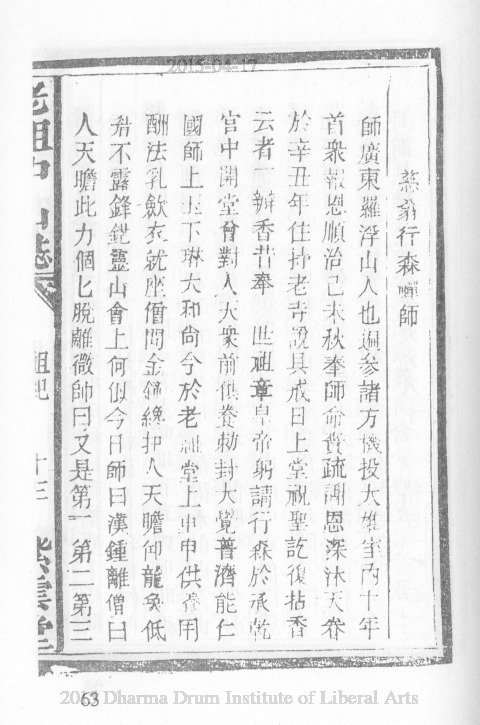 2015-04-17
慈翁行森禪師
師廣東羅浮山人也遍參諸方機投大雄室內十年
首衆報恩順治己未秋奉師命賫疏謝恩深沐天眷
於辛丑年住持老寺說具戒日上堂祝聖訖復拈香
云者一瓣香昔奉 世祖章皇帝躬請行森於承乾
宮中開堂曾對人天大衆前供養勅封大覺普濟能仁
國師上玉下琳大和尚今於老祖堂上申申供養用
酬法乳歛衣就座僧問金鐘纔扣人天瞻仰龍奐低
不露鋒鋩靈山會上何似今日師曰漢鍾離僧曰
人天瞻此力個匕脫離微師曰又是第一第二第三
老祖山志 祖 十三 紫雲堂
63
Dharma Drum Institute of Liberal Arts